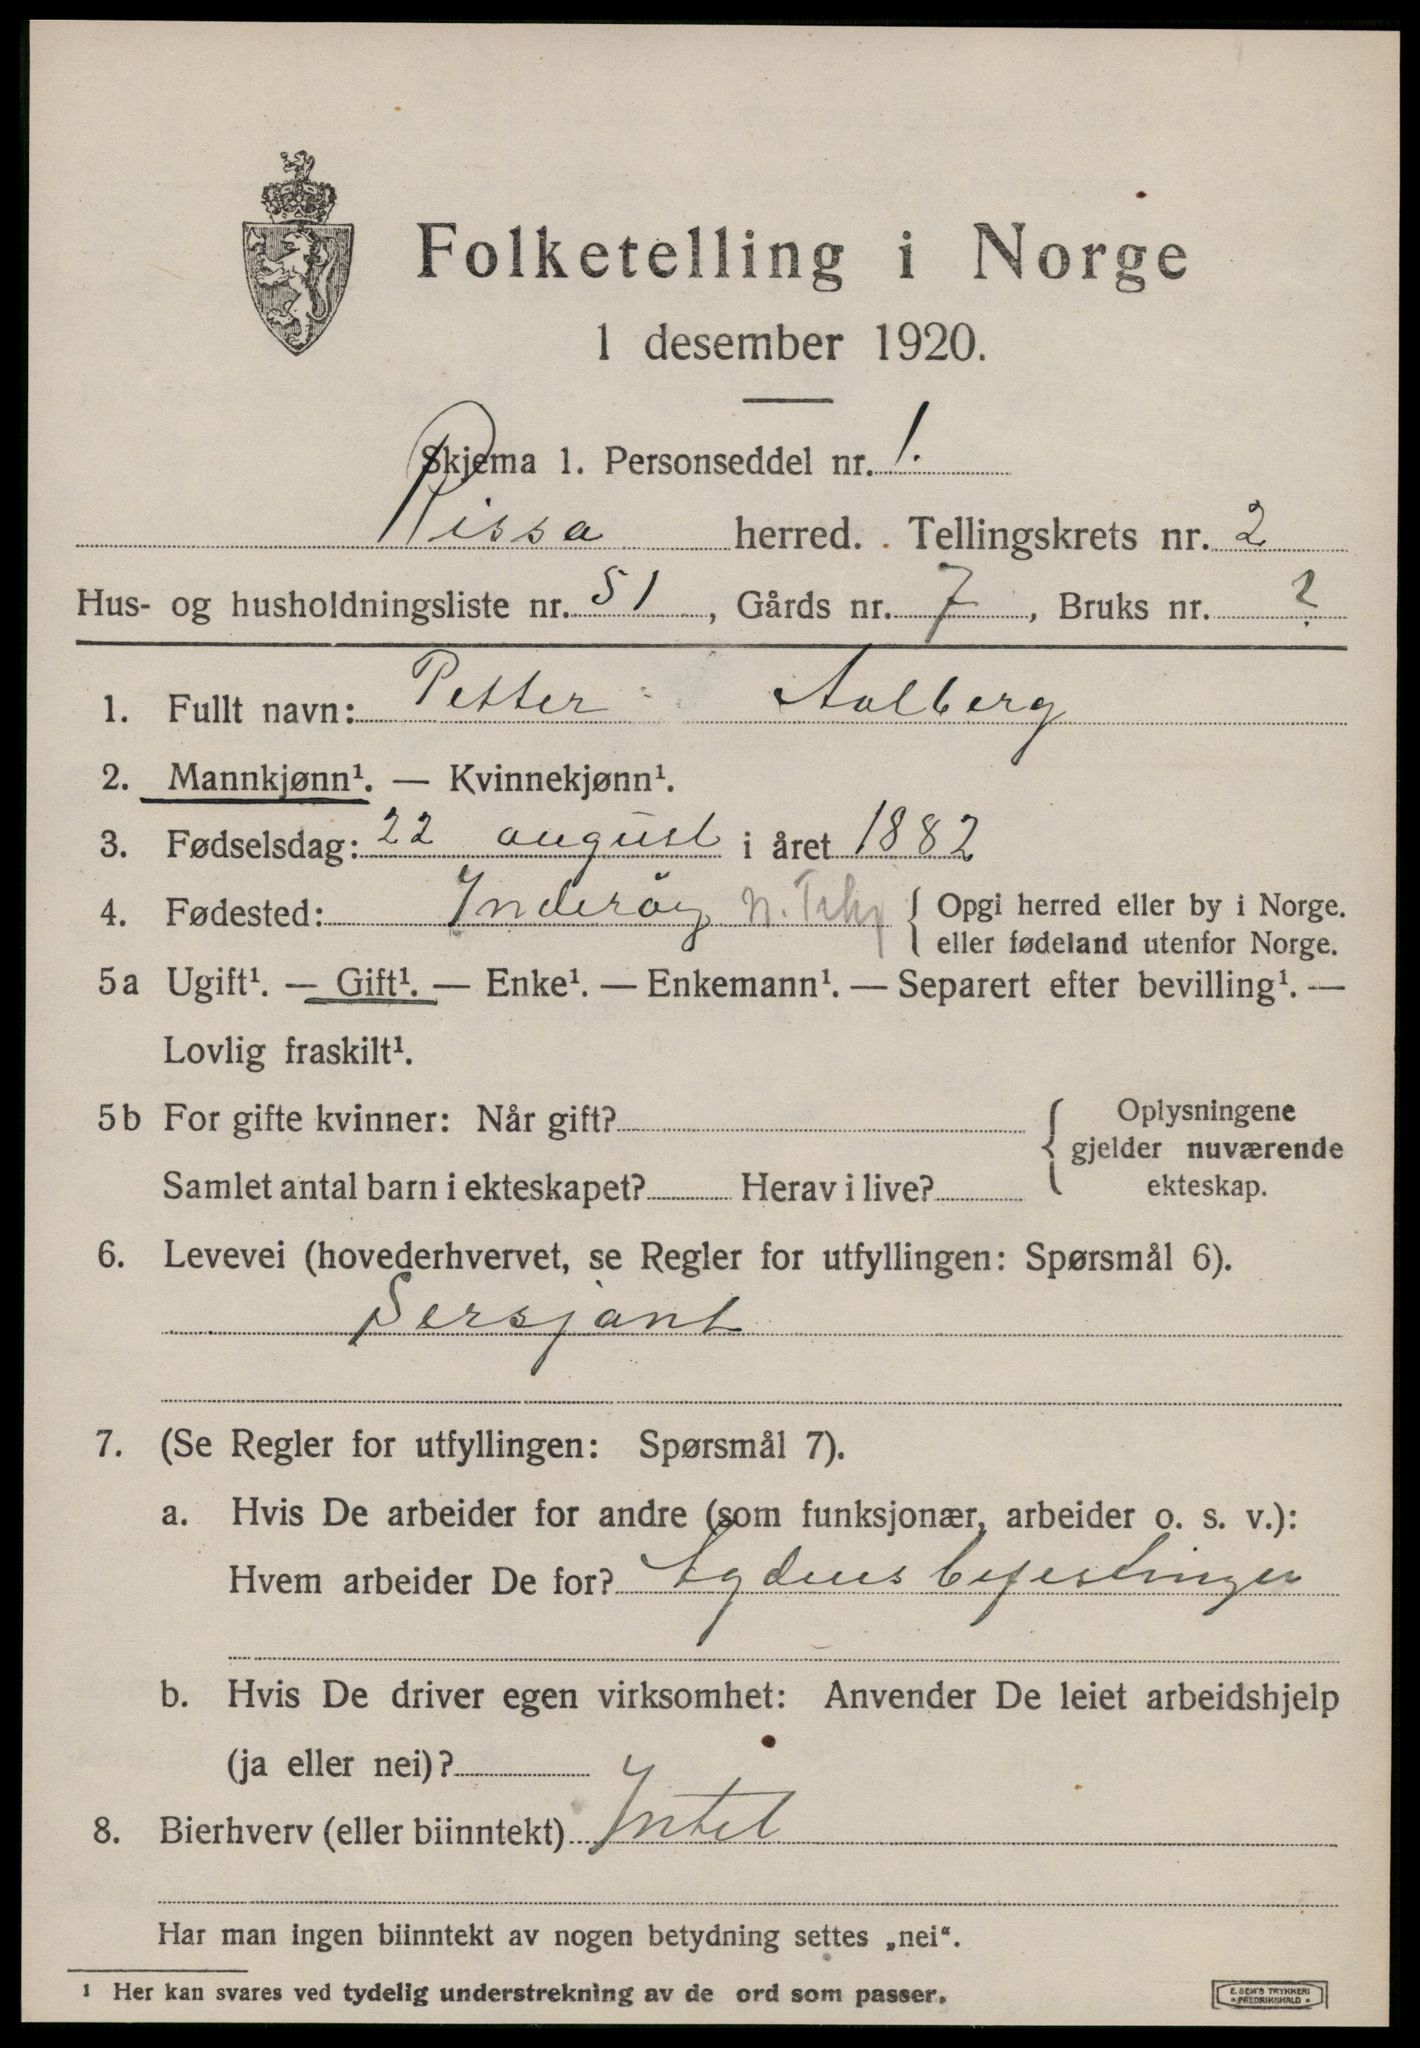 Folketelling i Norge
1 desember 1920.
Skjema 1. Personseddel nr. 1.
Rissa herred. Tellingskrets nr. 2
Hus- og husholdningsliste nr. 51, Gårds nr. 7, Bruks nr. ?
1. Fullt navn: Petter Aalberg
2. Mannkjønn¹. — Kvinnekjønn¹.
3. Fødselsdag: 22 august i året 1882
4. Fødested: Inderöy N. { Opgi herred eller by i Norge.
eller fødeland utenfor Norge.
5a Ugift¹. — Gift¹. — Enke¹. — Enkemann¹. — Separert efter bevilling¹. —
Lovlig fraskilt¹.
5b For gifte kvinner: Når gift? { Oplysningene
gjelder nuværende
Samlet antal barn i ekteskapet? Herav i live? ekteskap.
6. Levevei (hovederhvervet, se Regler for utfyllingen: Spørsmål 6).
Sersjant
7. (Se Regler for utfyllingen: Spørsmål 7).
a. Hvis De arbeider for andre (som funksjonær, arbeider o. s. v.):
Hvem arbeider De for? Agdenes befestninger
b. Hvis De driver egen virksomhet: Anvender De leiet arbeidshjelp
(ja eller nei)?
8. Bierhverv (eller biinntekt) Intet
Har man ingen biinntekt av nogen betydning settes „nei“.
1 Her kan svares ved tydelig understrekning av de ord som passer.
E. SEM'S TRYKKERI
FREDRIKSHALD